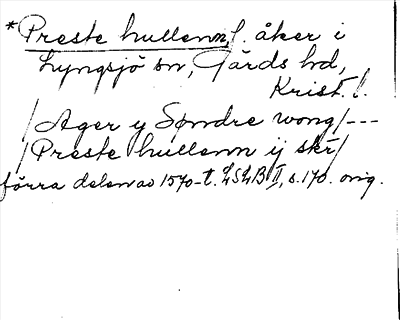 *Preste hullenn, f. åker i
Lyngsjö sn, Gärds hd,
Krist. l.
/Ager y Søndre wong/---
/Preste hullenn ij skr/
förra delen av 1570-t. LSLB II, s. 170. orig.